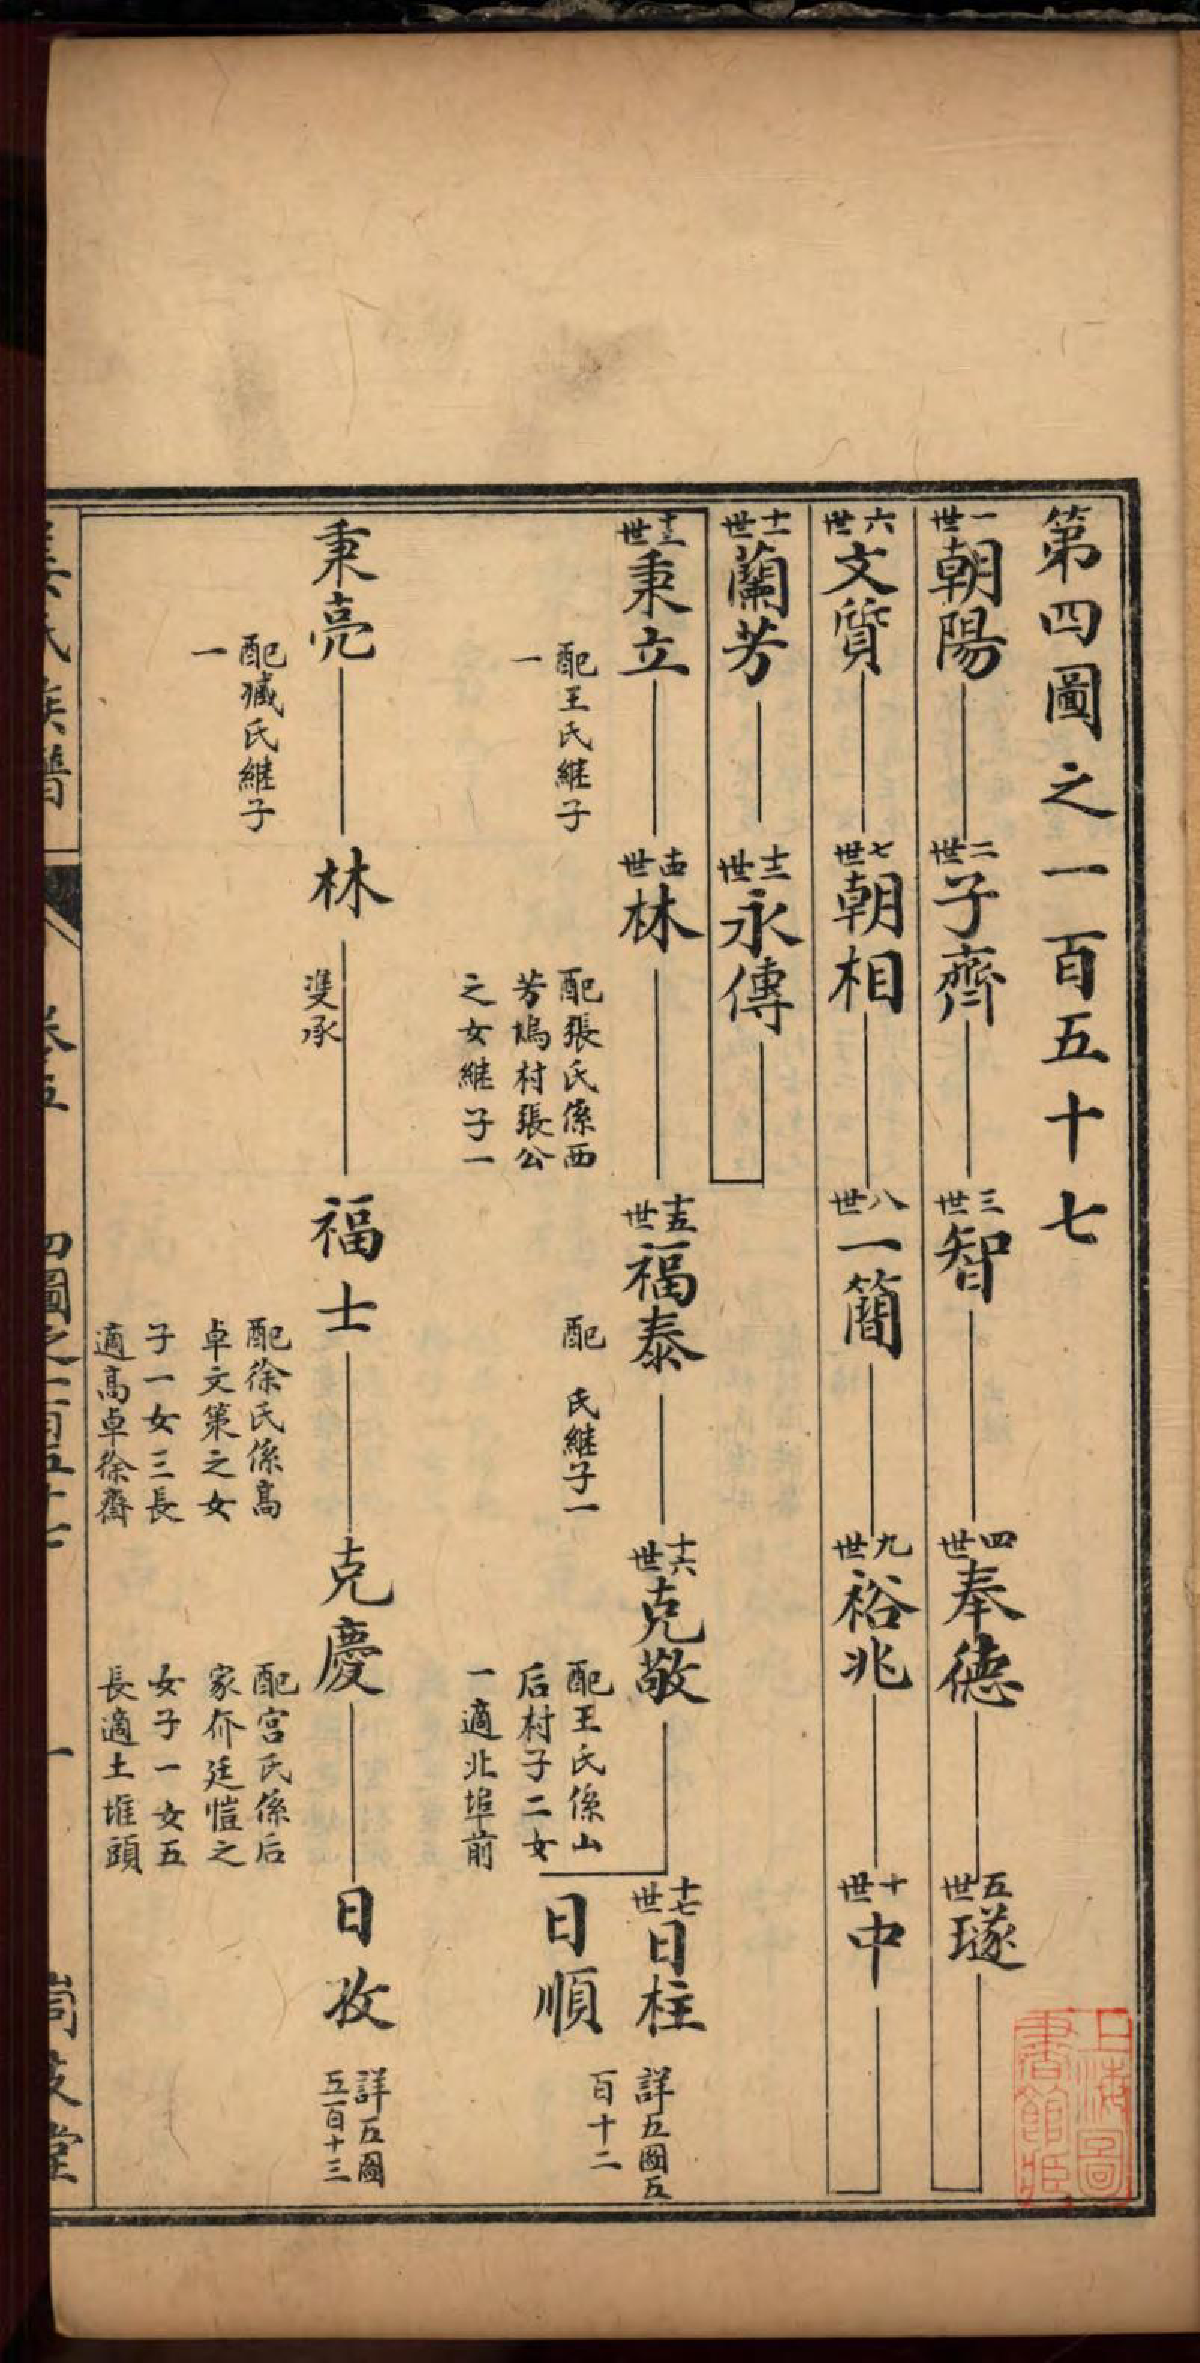 第四圖之一百五十七
一世 朝陽 二世 子齊 三世 智 四世 奉德 五世 璲
六世 文質 七世 朝相 八世 一簡 九世 裕兆 十世 中
十一世 蘭芳 十二世 永傳
十三世 秉立 十四世 林 十五世 福泰 十六世 克敬 十七世 日柱
配王氏継子
一
配張氏係西
芳塢村張公
之女継子一
配 氏継子一
配王氏係山
后村子二女
一適北埠前
日順
詳五圖五
百十二
秉亮 林 福士 克慶 日孜
配臧氏継子
一
雙承
配徐氏係高
卓文策之女
子一女三長
適高卓徐齋
配宮氏係后
家夼廷愷之
女子一女五
長適土堆頭
詳五圖
五百十三
氏族譜 卷五 四圖之一百五十七 一 堂
上海圖書館藏